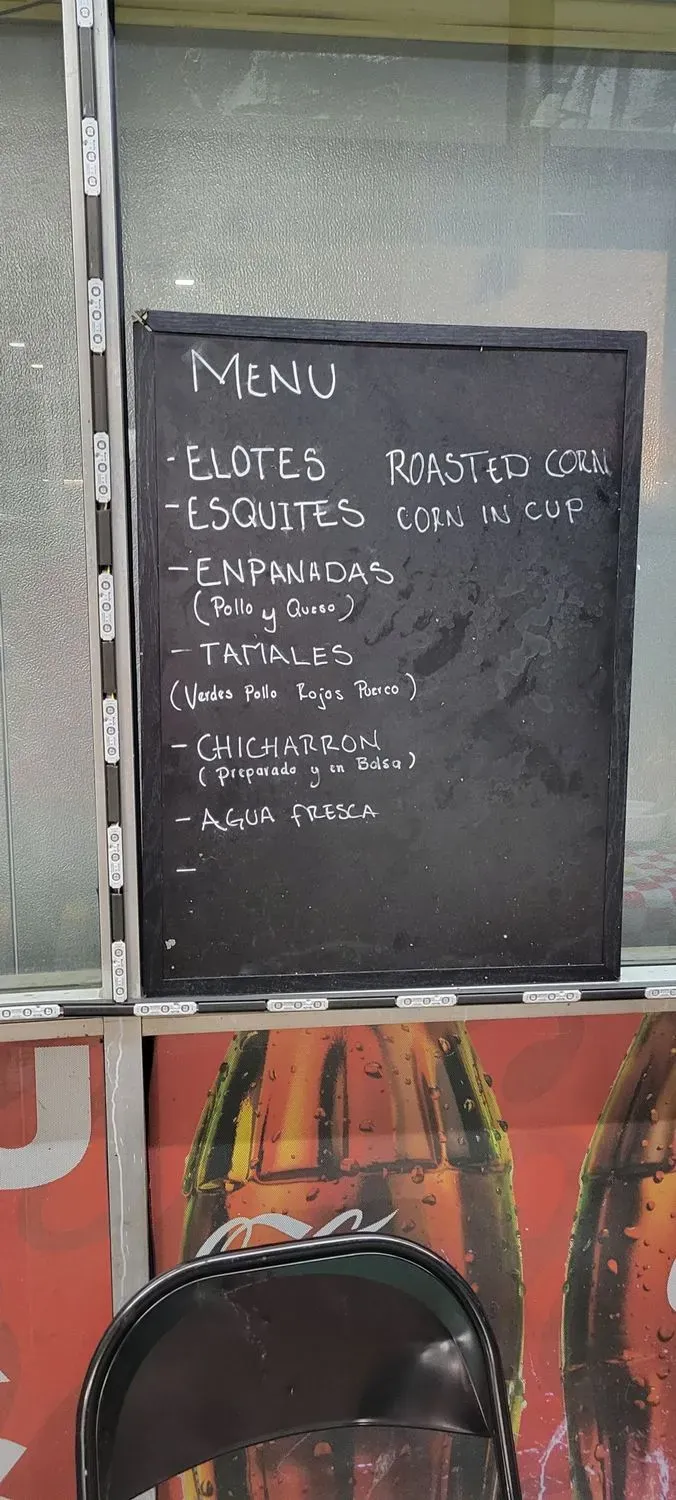 MENU
- ELOTES ROASTED CORN
- ESQUITES CORN IN CUP
- ENPANADAS
(Pollo y Queso)
- TAMALES
(Verdes Pollo Rojos Puerco)
- CHICHARRON
(Preparado y en Bolsa)
- AGUA FRESCA
-